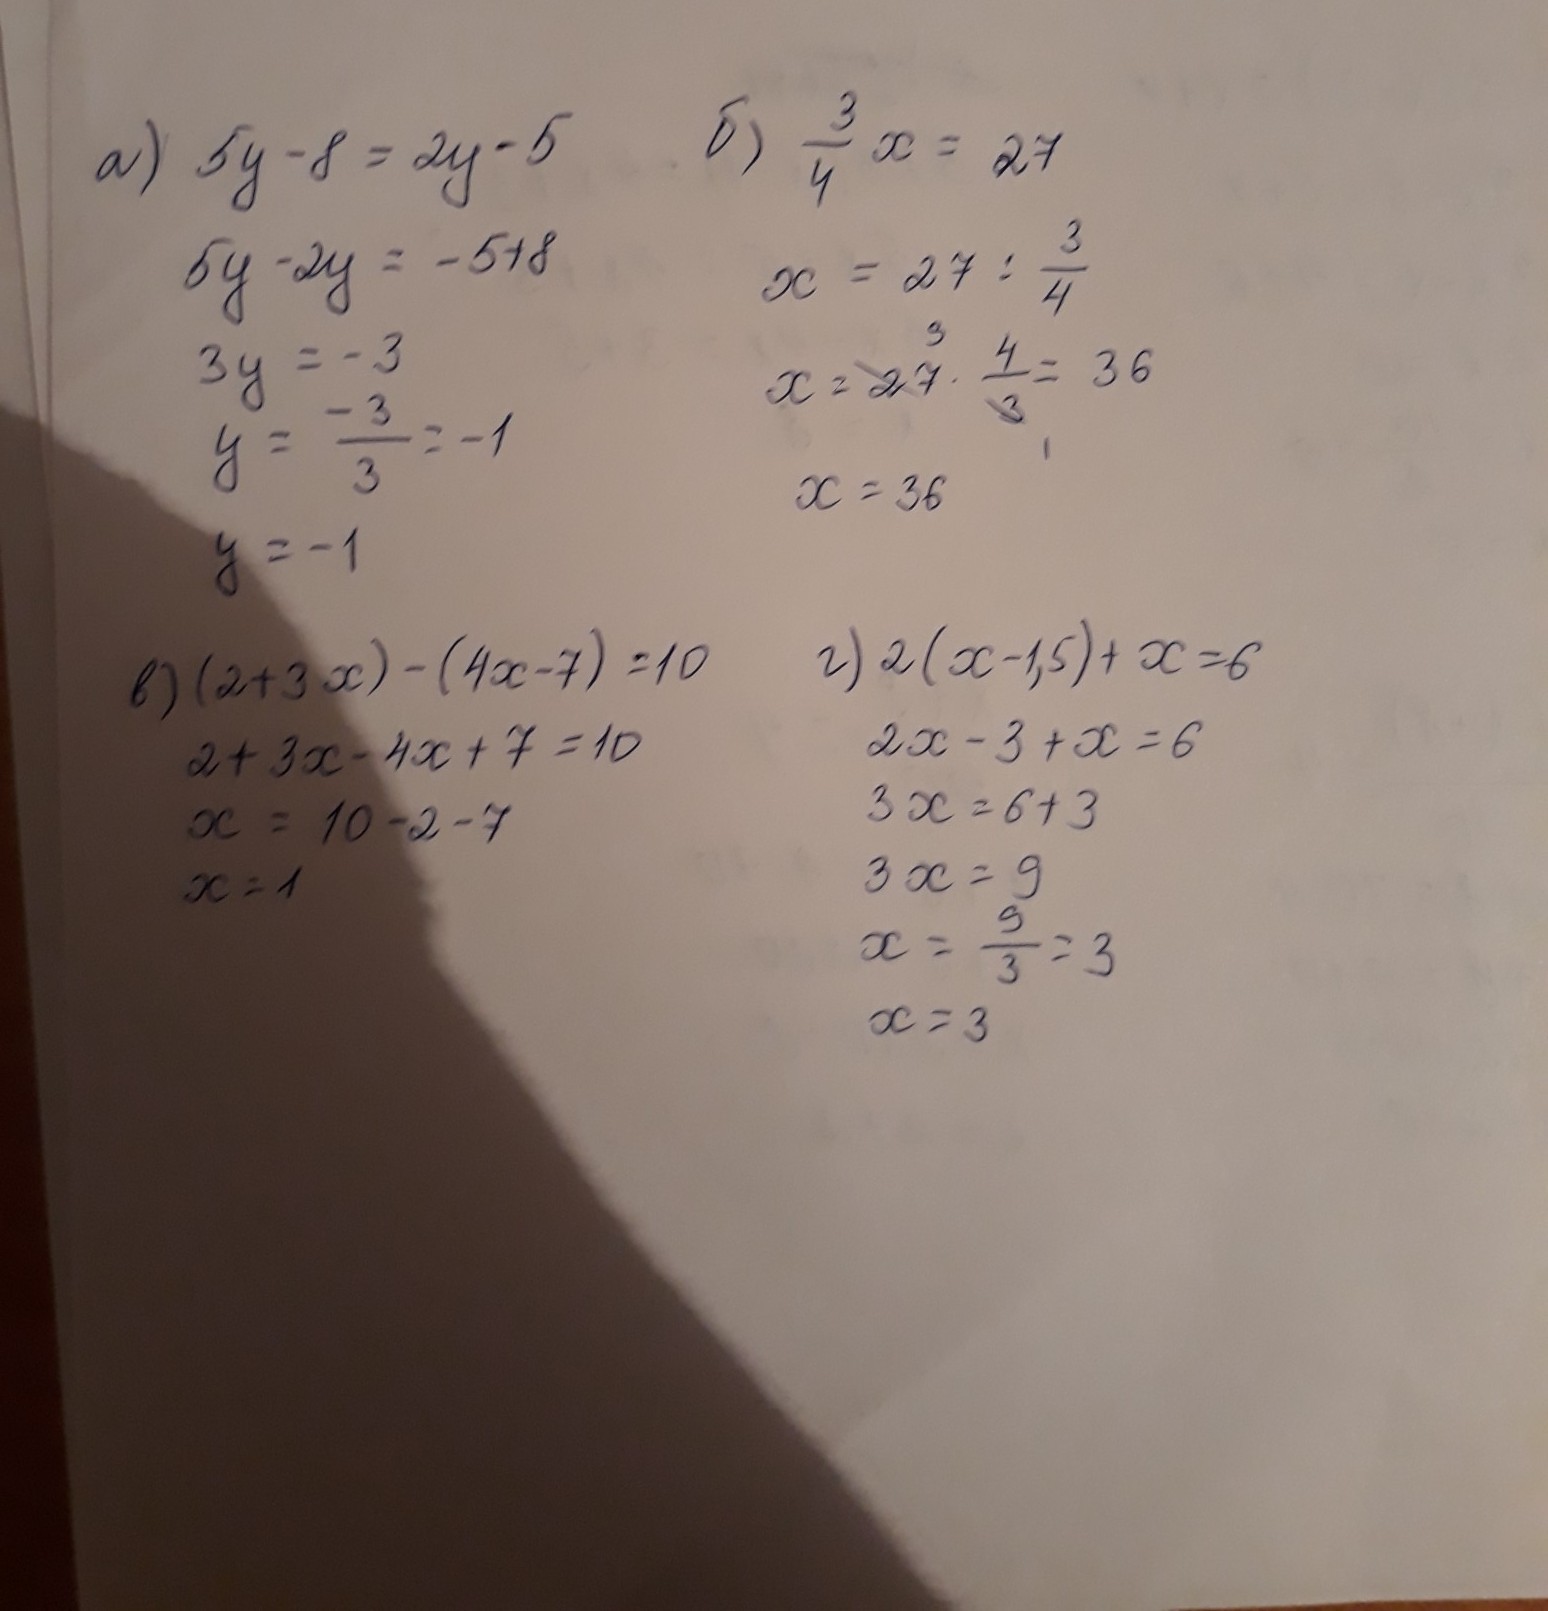 а) 5y - 8 = 2y - 5
5y - 2y = -5+8
3y = -3
y = -3/3 = -1
y = -1
б) 3/4 x = 27
x = 27 : 3/4
9
x = 27 · 4/3 = 36
1
x = 36
в) (2+3x) - (4x-7) = 10
2 + 3x - 4x + 7 = 10
x = 10 - 2 - 7
x = 1
г) 2(x-1,5) + x = 6
2x - 3 + x = 6
3x = 6+3
3x = 9
x = 9/3 = 3
x = 3